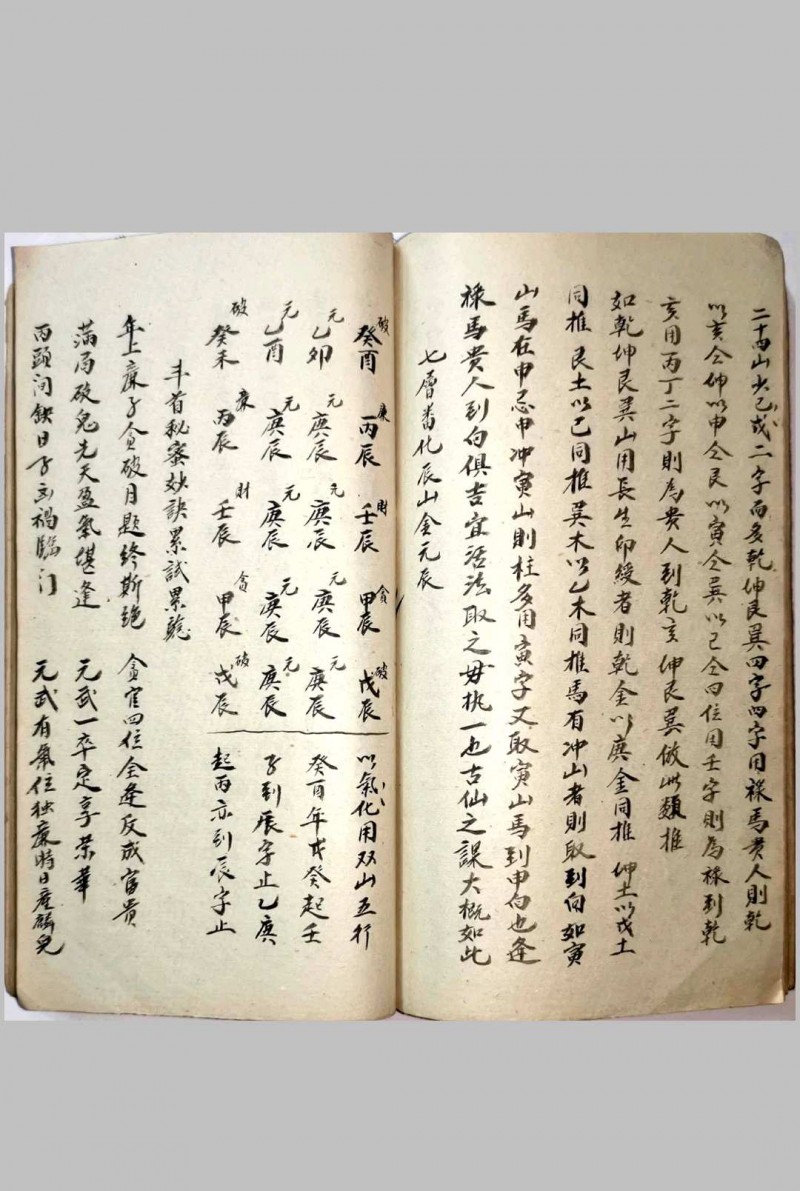 二十四山少己戊二字而多乾坤艮巽四字四字用祿馬貴人則乾
以亥仝坤以申仝艮以寅仝巽以巳仝四位用壬字則為祿到乾
亥用丙丁二字則為貴人到乾亥坤艮巽倣此類推
如乾坤艮巽山用長生印綬者則乾金以庚金同推坤土以戊土
同推艮土以己同推巽木以乙木同推馬有冲山者則取到向如寅
山馬在申忌申冲寅山則柱多用寅字又取寅山馬到申向也逢
祿馬貴人到向俱吉宜活法取之毋执一也古仙之課大概如此
七層番化辰山金元辰
破癸酉 廉丙辰 財壬辰 貪甲辰 破戊辰 以氣化用双山五行
元乙卯 元庚辰 元庚辰 元庚辰 元庚辰 癸酉年戊癸起壬
元乙酉 元庚辰 元庚辰 元庚辰 元庚辰 子到辰字止乙庚
破癸未 廉丙辰 財壬辰 貪甲辰 破戊辰 起丙亦到辰字止
斗首秘蜜妙訣累試累驗
年上廉子貪破月題終斯絶 貪官四位全逢反成富貴
滿局破鬼先天盈氣堪逢 元武一卒定享荣華
丙頭问鈌日子立禍臨门 元武有氣位独廉時日産麟兒